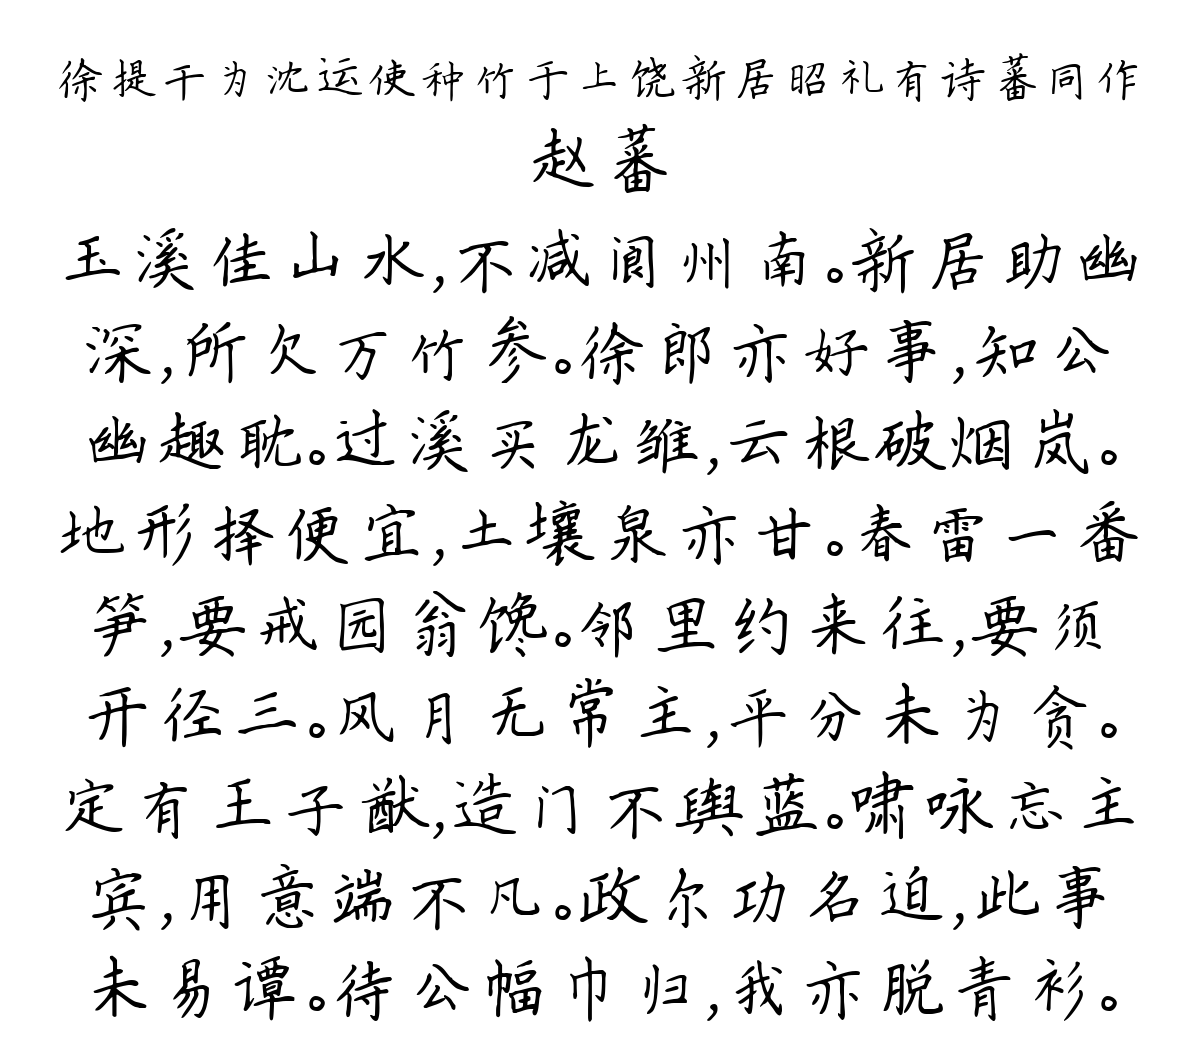 徐提干为沈运使种竹于上饶新居昭礼有诗蕃同作
赵蕃
玉溪佳山水,不减阆州南。新居助幽
深,所欠万竹参。徐郎亦好事,知公
幽趣耽。过溪买龙雏,云根破烟岚。
地形择便宜,土壤泉亦甘。春雷一番
笋,要戒园翁馋。邻里约来往,要须
开径三。风月无常主,平分未为贪。
定有王子猷,造门不舆蓝。啸咏忘主
宾,用意端不凡。政尔功名迫,此事
未易谭。待公幅巾归,我亦脱青衫。